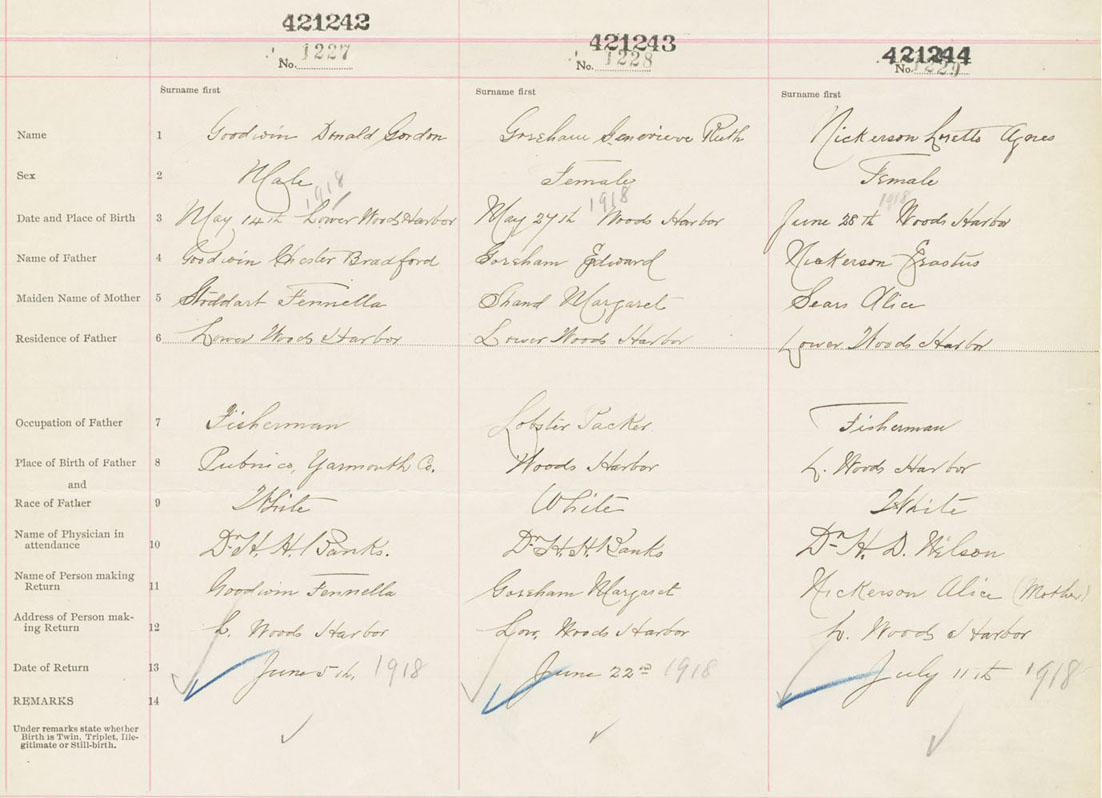 421242 421243 421244
No. 1227 No. 1228 No. 1229
Surname first Surname first Surname first
Name 1 Goodwin Donald Gordon Goreham Genevieve Ruth Nickerson Loretto Agnes
Sex 2 Male Female Female
1918 1918 1918
Date and Place of Birth 3 May 14th Lower Woods Harbor May 27th Woods Harbor June 28th Woods Harbor
Name of Father 4 Goodwin Chester Bradford Goreham Edward Nickerson Erastus
Maiden Name of Mother 5 Stoddart Fennella Shand Margaret Sears Alice
Residence of Father 6 Lower Woods Harbor Lower Woods Harbor Lower Woods Harbor
Occupation of Father 7 Fisherman Lobster Packer Fisherman
Place of Birth of Father 8 Pubnico, Yarmouth Co. Woods Harbor L. Woods Harbor
and
Race of Father 9 White White White
Name of Physician in
attendance 10 Dr H. H. Banks. Dr H. H. Banks Dr H. D. Wilson
Name of Person making
Return 11 Goodwin Fennella Goreham Margaret Nickerson Alice (Mother)
Address of Person mak-
ing Return 12 L. Woods Harbor Low. Woods Harbor L. Woods Harbor
Date of Return 13 June 5th, 1918 June 22nd 1918 July 11th 1918
REMARKS 14
Under remarks state whether
Birth is Twin, Triplet, Ille-
gitimate or Still-birth.